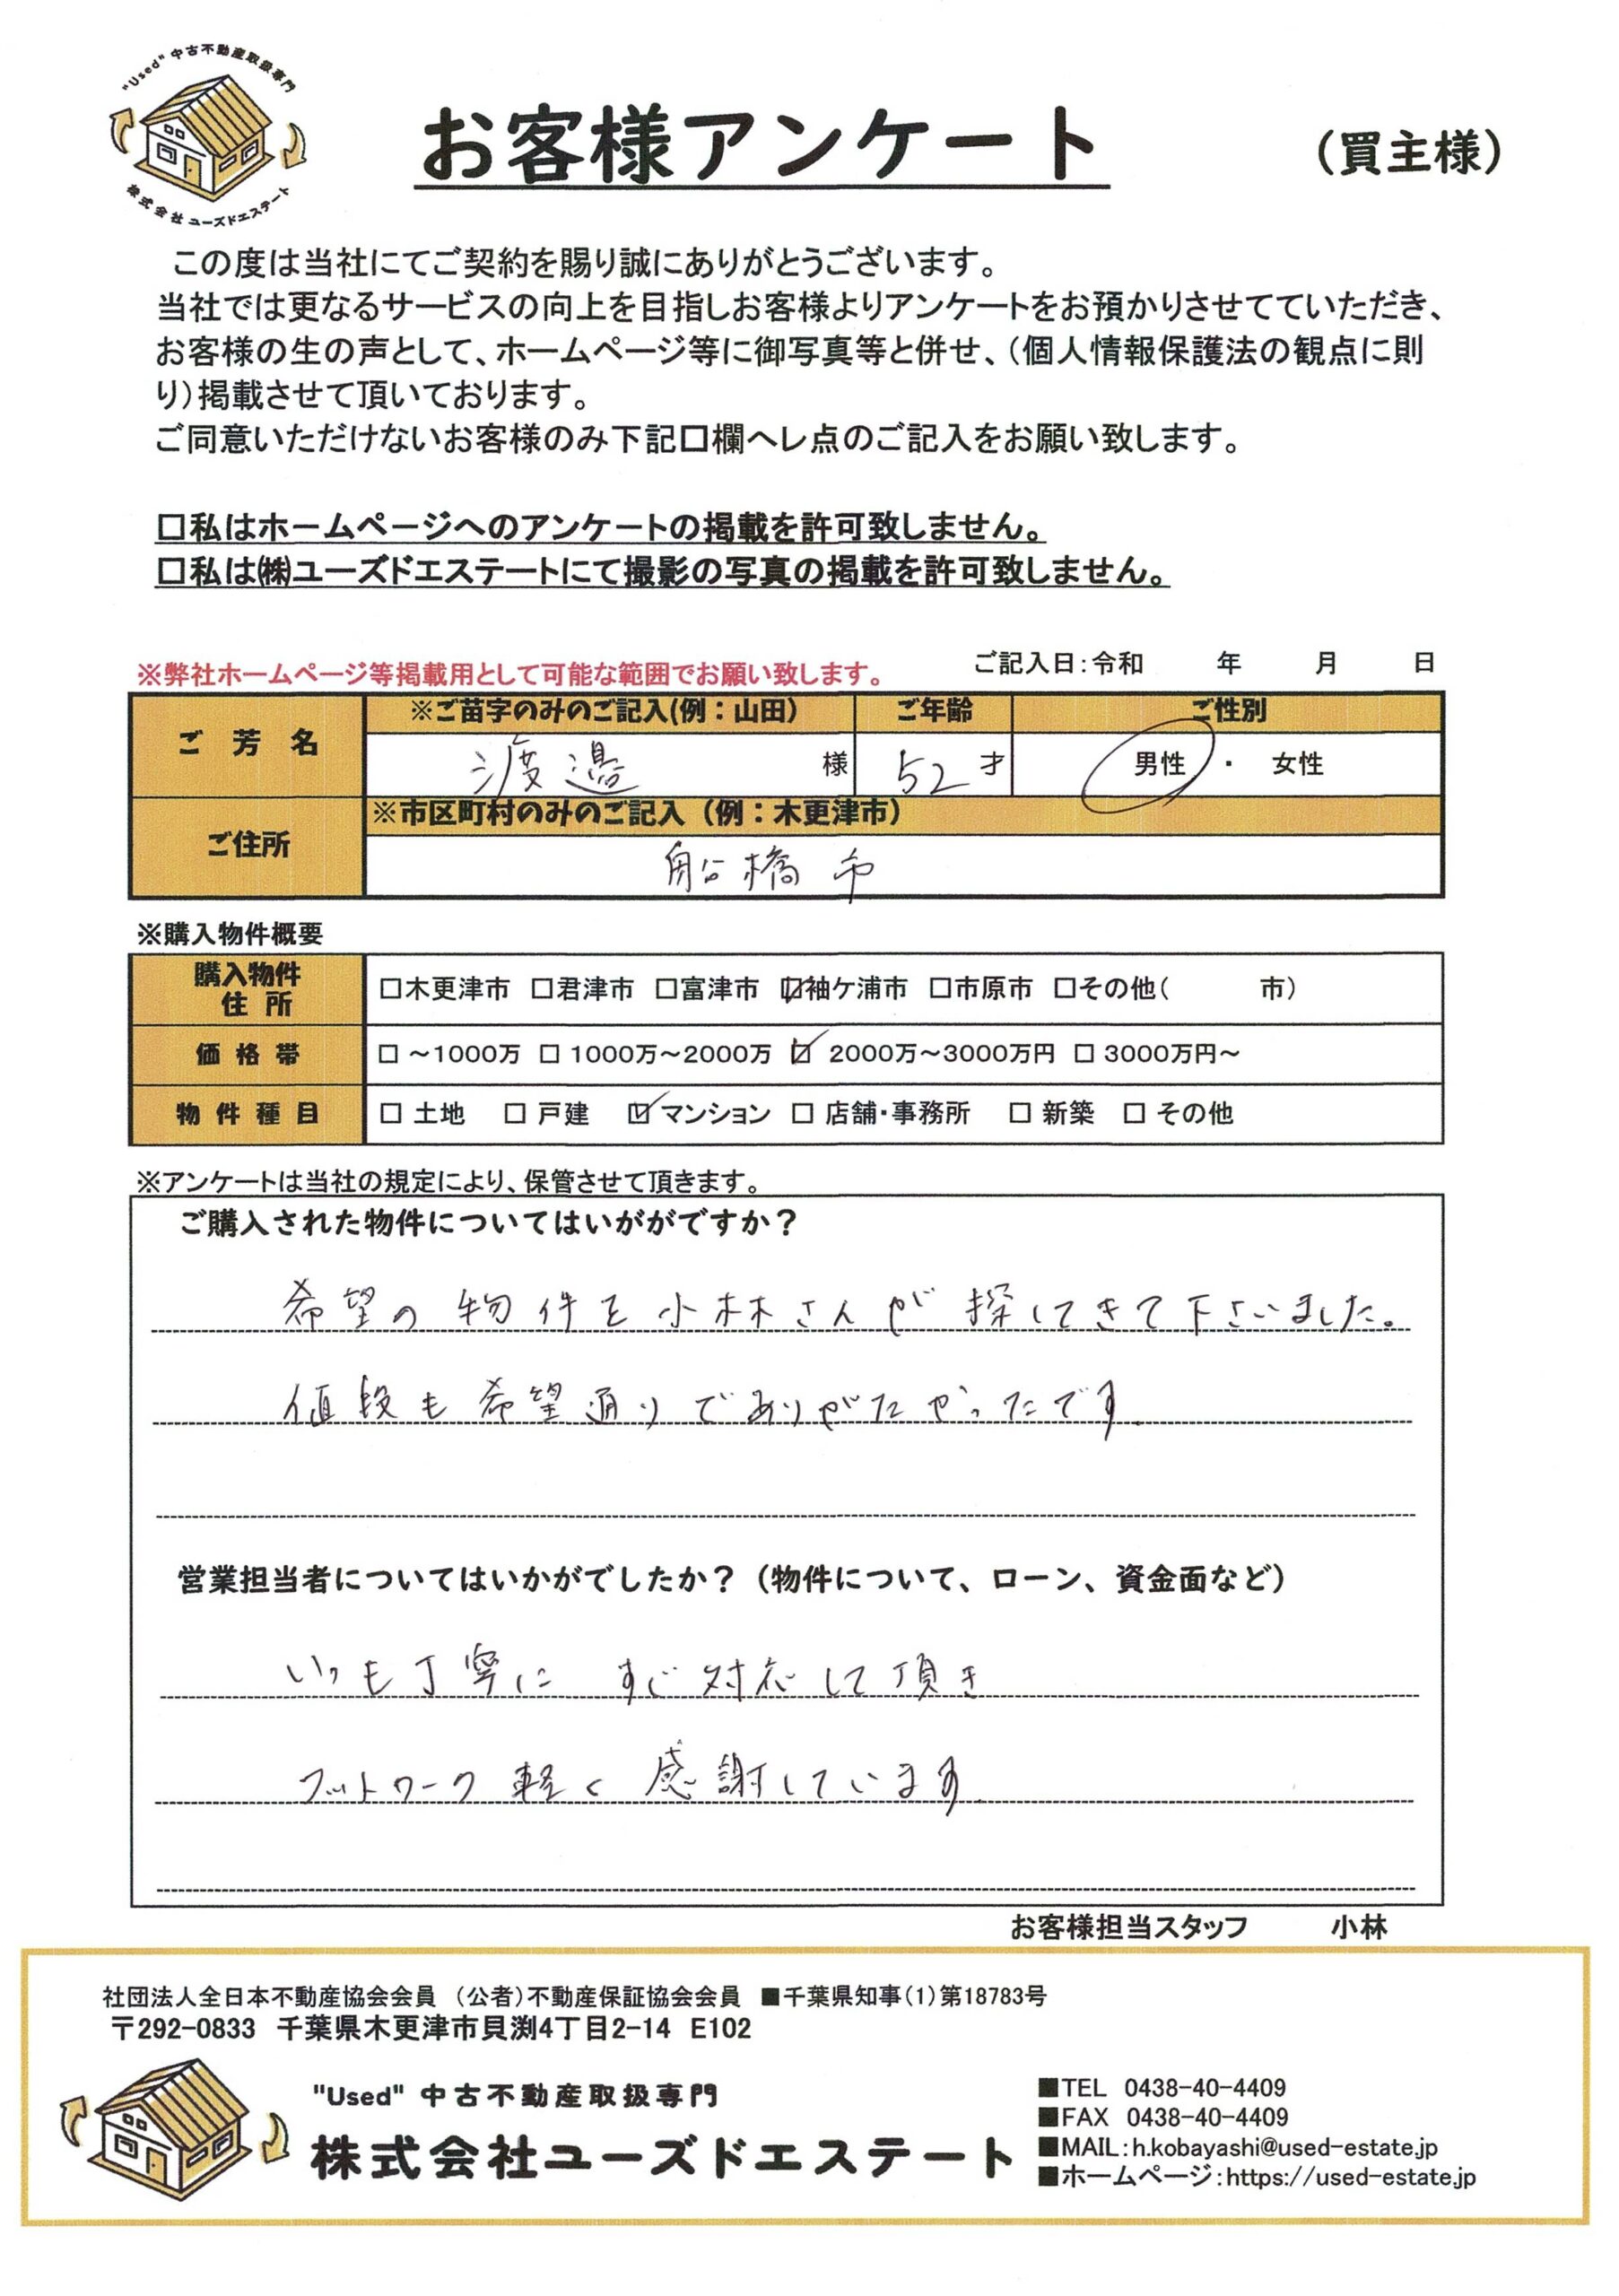 "Used" 中古不動産取扱専門
株式会社 ユーズドエステート
お客様アンケート
（買主様）
この度は当社にてご契約を賜り誠にありがとうございます。
当社では更なるサービスの向上を目指しお客様よりアンケートをお預かりさせてていただき、
お客様の生の声として、ホームページ等に御写真等と併せ、（個人情報保護法の観点に則
り）掲載させて頂いております。
ご同意いただけないお客様のみ下記口欄へレ点のご記入をお願い致します。
□私はホームページへのアンケートの掲載を許可致しません。
□私は㈱ユーズドエステートにて撮影の写真の掲載を許可致しません。
※弊社ホームページ等掲載用として可能な範囲でお願い致します。
ご記入日：令和 年 月 日
ご 芳 名 ※ご苗字のみのご記入(例：山田） ご年齢 ご性別
渡邉 様 52 才 男性 ・ 女性
ご住所 ※市区町村のみのご記入（例：木更津市）
船橋市
※購入物件概要
購入物件
住 所
□木更津市 □君津市 □富津市 ☑袖ケ浦市 □市原市 □その他（ 市）
価 格 帯 □ ～1000万 □ 1000万～2000万 ☑ 2000万～3000万円 □ 3000万円～
物 件 種 目 □ 土地 □ 戸建 ☑ マンション □ 店舗・事務所 □ 新築 □ その他
※アンケートは当社の規定により、保管させて頂きます。
ご購入された物件についてはいががですか？
希望の物件を小林さんが探してきて下さいました。
値段も希望通りでありがたかったです
営業担当者についてはいかがでしたか？（物件について、ローン、資金面など）
いつも丁寧に すぐ対応して頂き
フットワーク軽く 感謝しています
お客様担当スタッフ 小林
社団法人全日本不動産協会会員 （公者）不動産保証協会会員 ■千葉県知事（1）第18783号
〒292-0833 千葉県木更津市貝渕4丁目2-14 E102
"Used" 中古不動産取扱専門
株式会社ユーズドエステート
■TEL 0438-40-4409
■FAX 0438-40-4409
■MAIL：h.kobayashi@used-estate.jp
■ホームページ：https://used-estate.jp